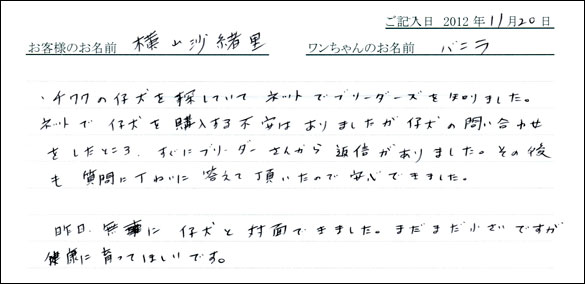 ご記入日 2012年11月20日
お客様のお名前 横山沙緒里 ワンちゃんのお名前 バニラ
・チワワの仔犬を探していて ネットでブリーダーズを知りました。
ネットで 仔犬を購入する不安は ありましたが 仔犬の問い合わせ
をしたところ、すぐにブリーダーさんから 返信がありました。その後
も 質問に丁ねいに 答えて頂いたので 安心できました。
昨日、無事に 仔犬と 対面できました。まだまだ小さいですが
健康に育ってほしいです。